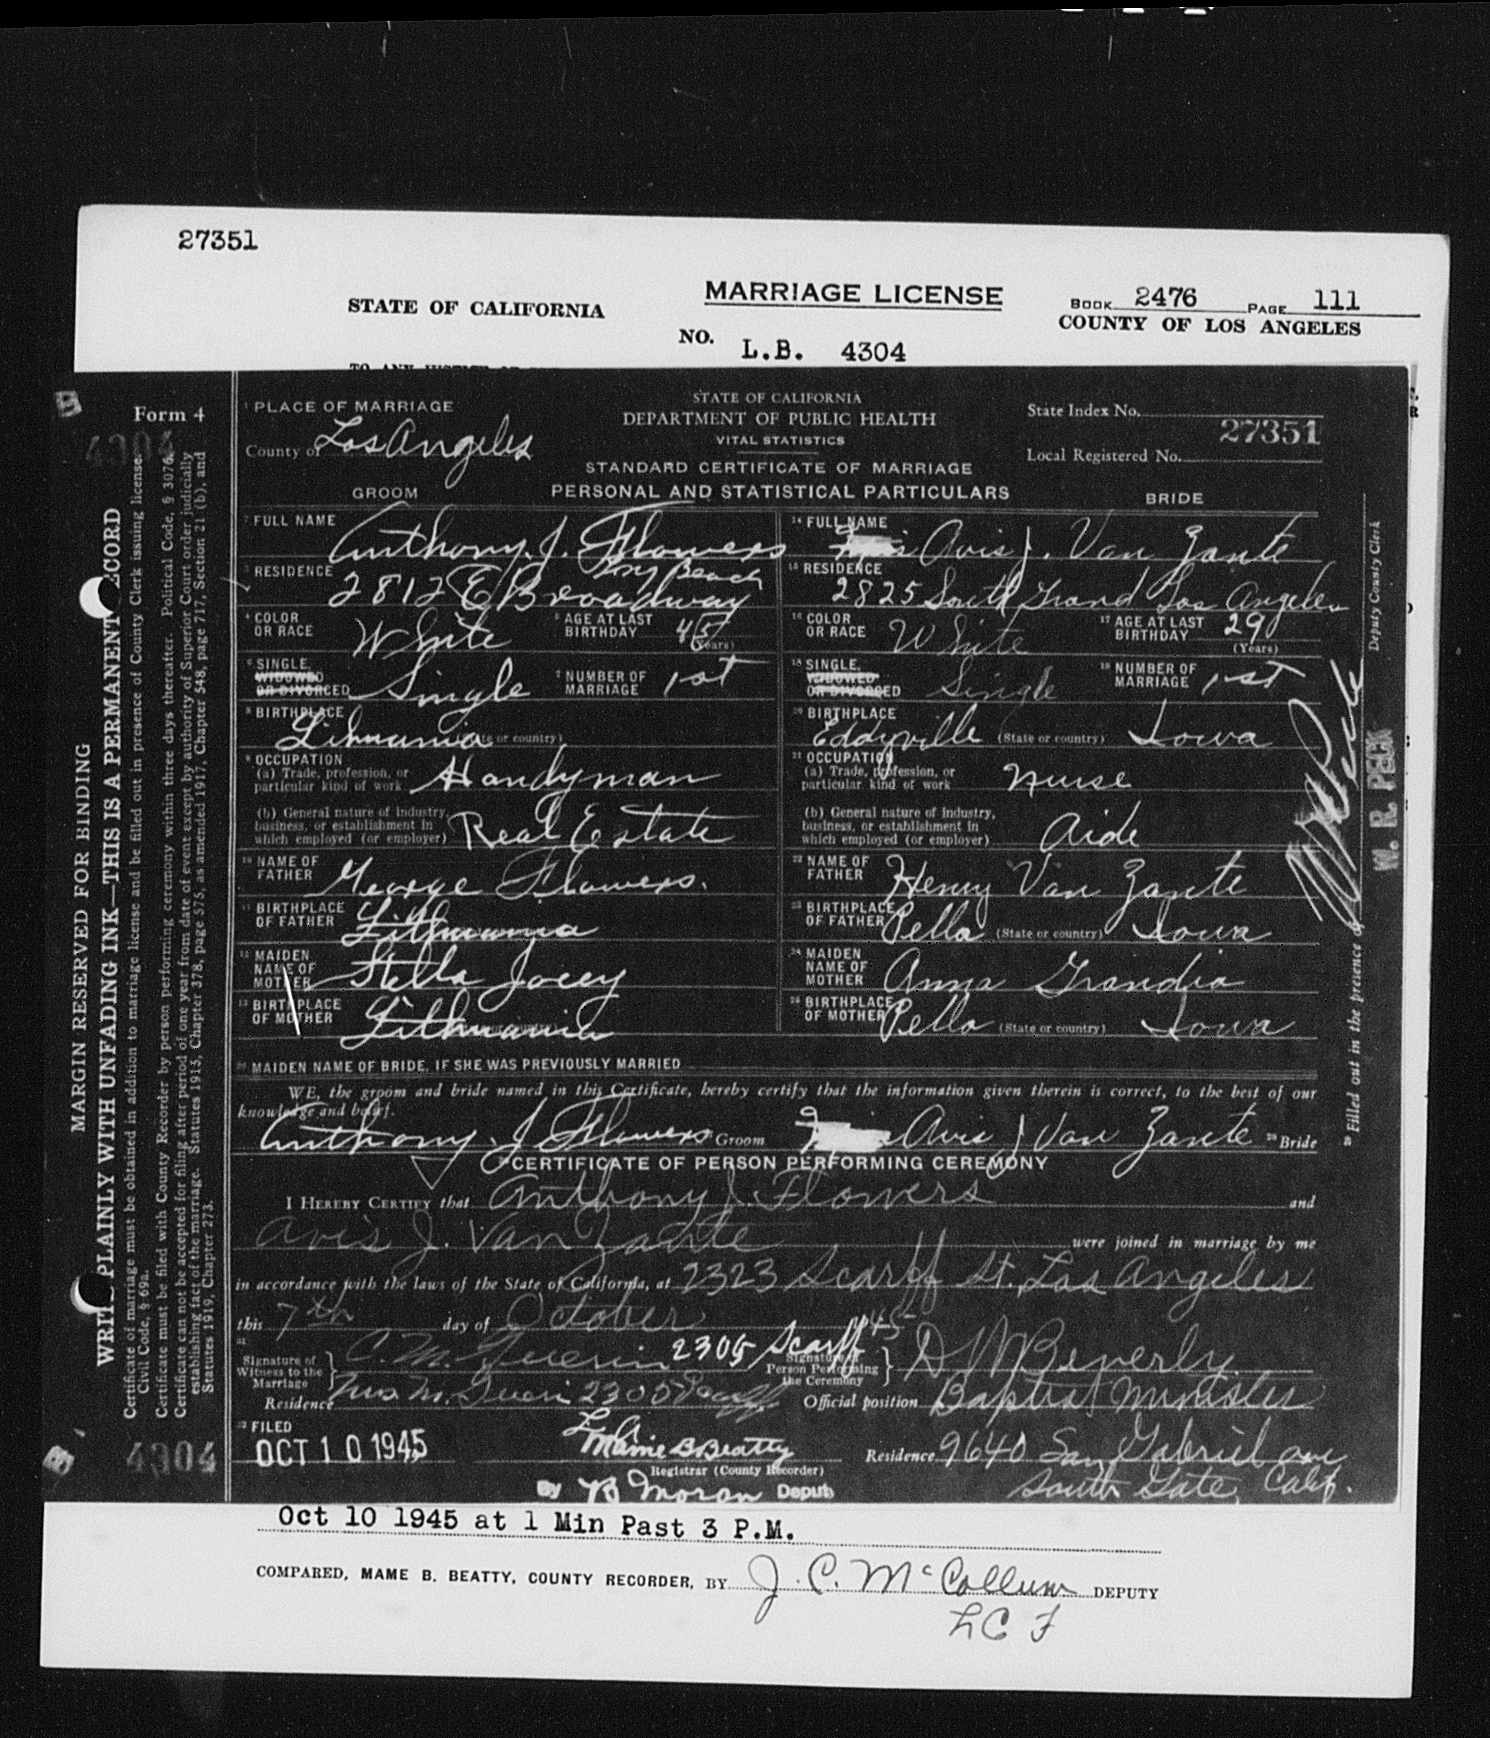 27351
MARRIAGE LICENSE
STATE OF CALIFORNIA
BOOK 2476 PAGE 111
COUNTY OF LOS ANGELES
NO. L.B. 4304
B
Form 4
4304
MARGIN RESERVED FOR BINDING
WRITE PLAINLY WITH UNFADING INK—THIS IS A PERMANENT RECORD
Certificate of marriage must be obtained in addition to marriage license and be filled out in presence of County Clerk issuing license.
Civil Code, § 69a.
Certificate must be filed with County Recorder by person performing ceremony within three days thereafter. Political Code, § 3076.
Certificate can not be accepted for filing after period of one year from date of event except by authority of Superior Court order judicially
establishing fact of the marriage. Statutes 1913, Chapter 378, page 575, as amended 1917, Chapter 548, page 717, Section 21 (b), and
Statutes 1919, Chapter 273.
4304
1 PLACE OF MARRIAGE
County of Los Angeles
STATE OF CALIFORNIA
DEPARTMENT OF PUBLIC HEALTH
VITAL STATISTICS
STANDARD CERTIFICATE OF MARRIAGE
State Index No.
27351
Local Registered No.
GROOM PERSONAL AND STATISTICAL PARTICULARS BRIDE
2 FULL NAME Anthony. J. Flowers
14 FULL NAME Avis J. Van Zante
3 RESIDENCE 2812 E Broadway Long Beach
15 RESIDENCE 2825 South Grand Los Angeles
4 COLOR OR RACE White
5 AGE AT LAST BIRTHDAY 45 (Years)
16 COLOR OR RACE White
17 AGE AT LAST BIRTHDAY 29 (Years)
6 SINGLE, WIDOWED OR DIVORCED Single
7 NUMBER OF MARRIAGE 1st
18 SINGLE, WIDOWED OR DIVORCED Single
19 NUMBER OF MARRIAGE 1st
8 BIRTHPLACE Lithuania (State or country)
20 BIRTHPLACE Eddyville (State or country) Iowa
9 OCCUPATION
(a) Trade, profession, or particular kind of work Handyman
21 OCCUPATION
(a) Trade, profession, or particular kind of work Nurse
(b) General nature of Industry, business, or establishment in which employed (or employer) Real Estate
(b) General nature of Industry, business, or establishment in which employed (or employer) Aide
10 NAME OF FATHER George Flowers.
22 NAME OF FATHER Henry Van Zante
11 BIRTHPLACE OF FATHER Lithuania
23 BIRTHPLACE OF FATHER Pella (State or country) Iowa
12 MAIDEN NAME OF MOTHER Stella Jocey
24 MAIDEN NAME OF MOTHER Anna Grandia
13 BIRTHPLACE OF MOTHER Lithuania
26 BIRTHPLACE OF MOTHER Pella (State or country) Iowa
MAIDEN NAME OF BRIDE, IF SHE WAS PREVIOUSLY MARRIED
WE, the groom and bride named in this Certificate, hereby certify that the information given therein is correct, to the best of our
knowledge and belief.
Anthony. J Flowers Groom Avis J Van Zante Bride
CERTIFICATE OF PERSON PERFORMING CEREMONY
I HEREBY CERTIFY that Anthony J. Flowers and
Avis J. Van Zante were joined in marriage by me
in accordance with the laws of the State of California, at 2323 Scarff St. Los Angeles
this 7th day of October 1945
Signature of Witness to the Marriage C. M. Guerin 2305 Scarff
Signature of Person Performing the Ceremony D W Beverly
Residence Mrs M. Guerin 2305 Scarff
Official position Baptist Minister
FILED
OCT 10 1945
Mame B Beatty
Registrar (County Recorder)
By B Moran Deputy
Residence 9640 San Gabriel ave
South Gate, Calif.
29 Filled out in the presence of W. R. PECK Deputy County Clerk
Oct 10 1945 at 1 Min Past 3 P.M.
COMPARED, MAME B. BEATTY, COUNTY RECORDER, BY J. C. McCollum DEPUTY
LCF